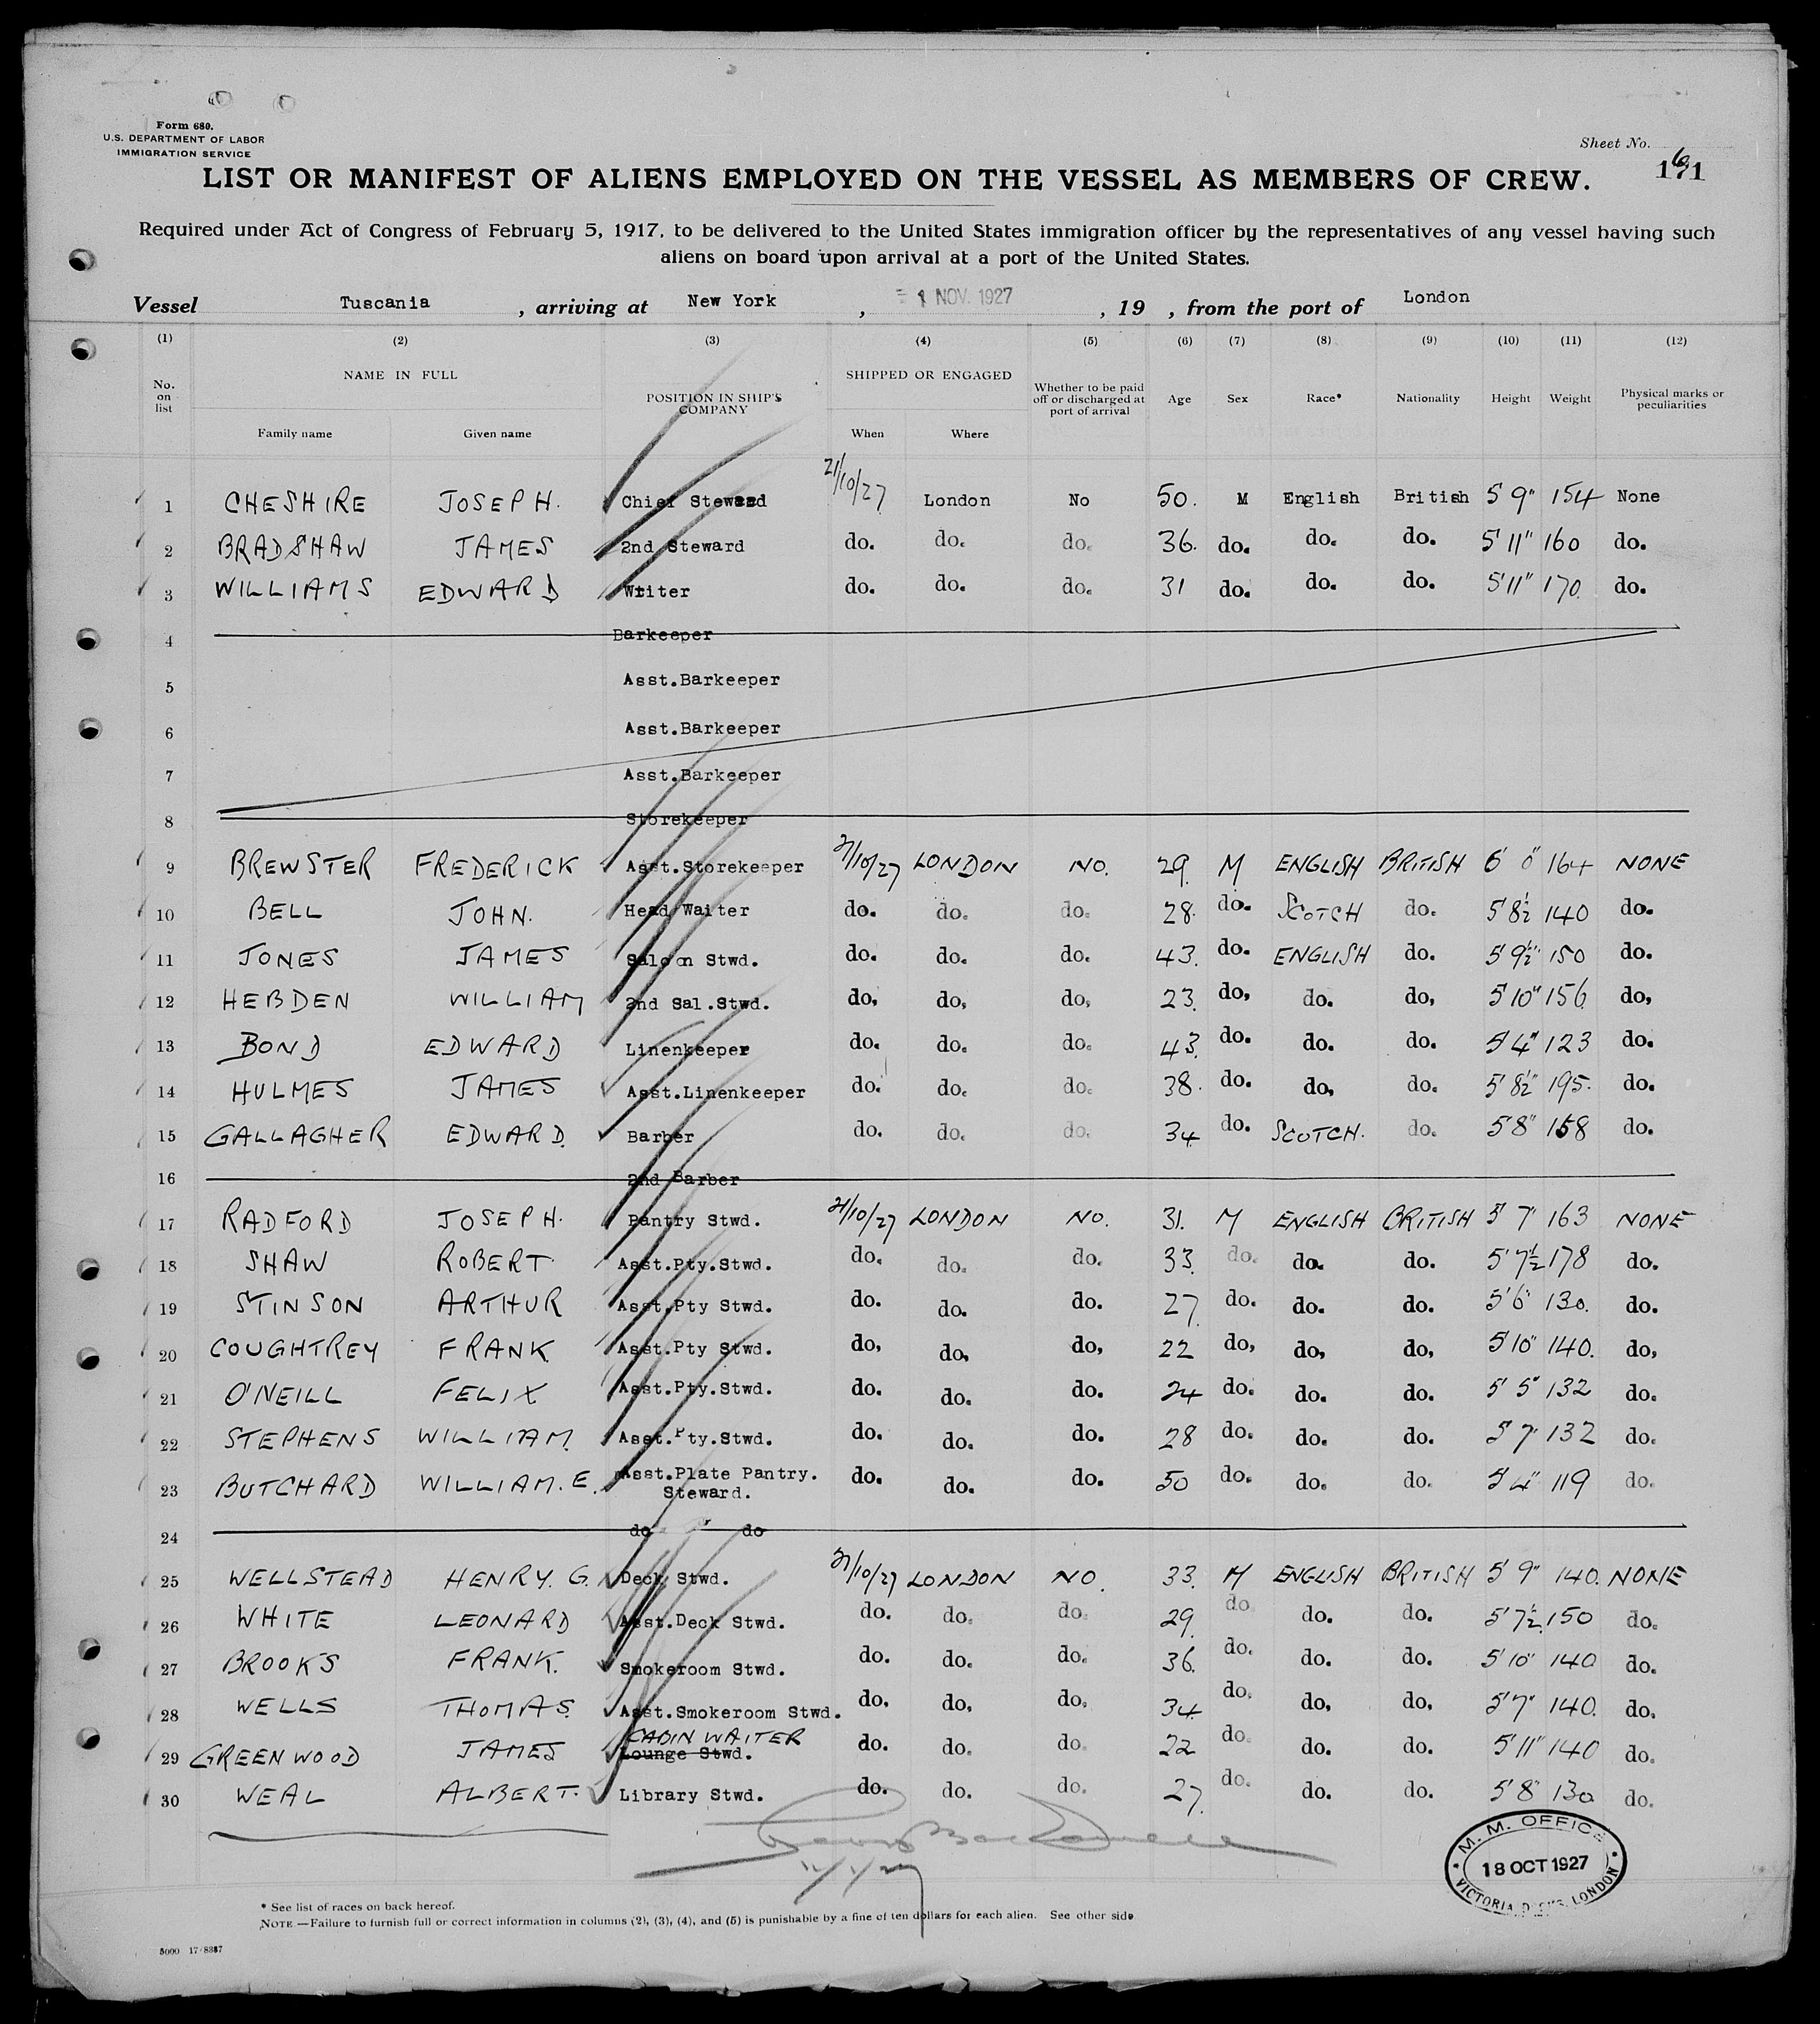 Form 680.
U.S. DEPARTMENT OF LABOR
IMMIGRATION SERVICE
Sheet No.
LIST OR MANIFEST OF ALIENS EMPLOYED ON THE VESSEL AS MEMBERS OF CREW.
Required under Act of Congress of February 5, 1917, to be delivered to the United States immigration officer by the representatives of any vessel having such
aliens on board upon arrival at a port of the United States.
Vessel Tuscania , arriving at New York , 1 NOV. 1927 , 19 , from the port of London
(1) (2) (3) (4) (5) (6) (7) (8) (9) (10) (11) (12)
No. on list NAME IN FULL POSITION IN SHIP'S COMPANY SHIPPED OR ENGAGED Whether to be paid off or discharged at port of arrival Age Sex Race* Nationality Height Weight Physical marks or peculiarities
Family name Given name When Where
1 CHESHIRE JOSEPH. Chief Steward 21/10/27 London No 50. M English British 5'9" 154 None
2 BRADSHAW JAMES 2nd Steward do. do. do. 36. do. do. do. 5'11" 160 do.
3 WILLIAMS EDWARD Writer do. do. do. 31 do. do. do. 5'11" 170. do.
4 Barkeeper
5 Asst.Barkeeper
6 Asst.Barkeeper
7 Asst.Barkeeper
8 Storekeeper
9 BREWSTER FREDERICK Asst.Storekeeper 21/10/27 LONDON NO. 29. M ENGLISH BRITISH 6' 0" 164 NONE
10 BELL JOHN. Head Waiter do. do. do. 28. do. SCOTCH do. 5'8½ 140 do.
11 JONES JAMES Saloon Stwd. do. do. do. 43. do. ENGLISH do. 5'9½" 150 do.
12 HEBDEN WILLIAM 2nd Sal.Stwd. do, do, do, 23. do, do. do, 5'10" 156. do,
13 BOND EDWARD Linenkeeper do. do. do. 43. do. do. do. 5'4" 123 do.
14 HULMES JAMES Asst.Linenkeeper do. do. do. 38. do. do, do. 5'8½" 195. do.
15 GALLAGHER EDWARD. Barber do. do. do. 34. do. SCOTCH. do. 5'8" 158 do.
16 2nd Barber
17 RADFORD JOSEPH. Pantry Stwd. 21/10/27 LONDON NO. 31. M ENGLISH BRITISH 5'7" 163 NONE
18 SHAW ROBERT. Asst.Pty.Stwd. do. do. do. 33. do. do. do. 5'7½ 178 do.
19 STINSON ARTHUR Asst.Pty Stwd. do. do. do. 27. do. do. do. 5'6" 130. do.
20 COUGHTREY FRANK Asst.Pty Stwd. do, do, do, 22 do, do, do, 5'10" 140. do,
21 O'NEILL FELIX Asst.Pty.Stwd. do. do. do. 24 do. do. do. 5'5" 132 do.
22 STEPHENS WILLIAM. Asst.Pty.Stwd. do. do. do. 28 do. do. do. 5'7" 132 do.
23 BUTCHARD WILLIAM. E. Asst.Plate Pantry. Steward. do. do. do. 50 do. do. do. 5'4" 119 do.
24 do do
25 WELLSTEAD HENRY. G. Deck Stwd. 21/10/27 LONDON NO. 33. M ENGLISH BRITISH 5'9" 140. NONE
26 WHITE LEONARD Asst.Deck Stwd. do. do. do. 29. do do. do. 5'7½ 150 do.
27 BROOKS FRANK. Smokeroom Stwd. do. do. do. 36. do. do. do. 5'10" 140 do.
28 WELLS THOMAS. Asst.Smokeroom Stwd. do. do, do, 34. do, do, do, 5'7" 140. do.
29 GREENWOOD JAMES CABIN WAITER Lounge Stwd. do. do. do. 22 do. do. do. 5'11" 140 do.
30 WEAL ALBERT. Library Stwd. do. do. do. 27. do. do. do. 5'8" 130 do.
M. M. OFFICE
18 OCT 1927
VICTORIA DOCKS, LONDON
* See list of races on back hereof.
NOTE.—Failure to furnish full or correct information in columns (2), (3), (4), and (5) is punishable by a fine of ten dollars for each alien. See other side
5000 17/8387